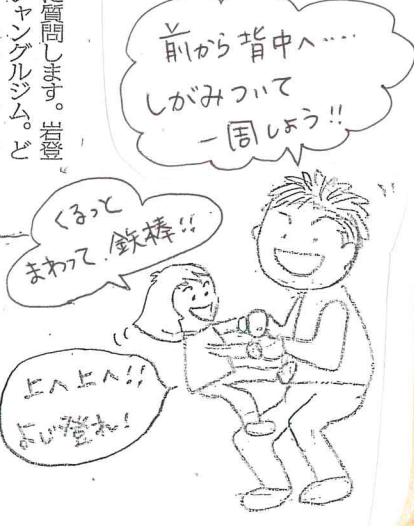 に質問します。岩登
ャングルジム。ど
前から背中へ……
しがみついて
一周しよう!!
くるっと
まわって、鉄棒!!
上へ上へ!!
よじ登れ!